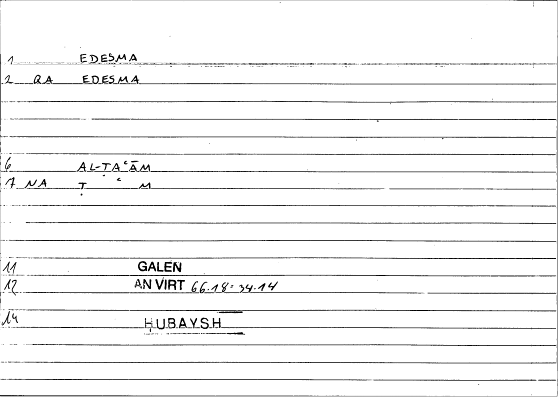 1 EDESMA
2 QA EDESMA
6 AL-ṬAʿĀM
7 NA Ṭ ʿ M
11 GALEN
12 AN VIRT 66.18=34.14
14 ḤUBAYSH